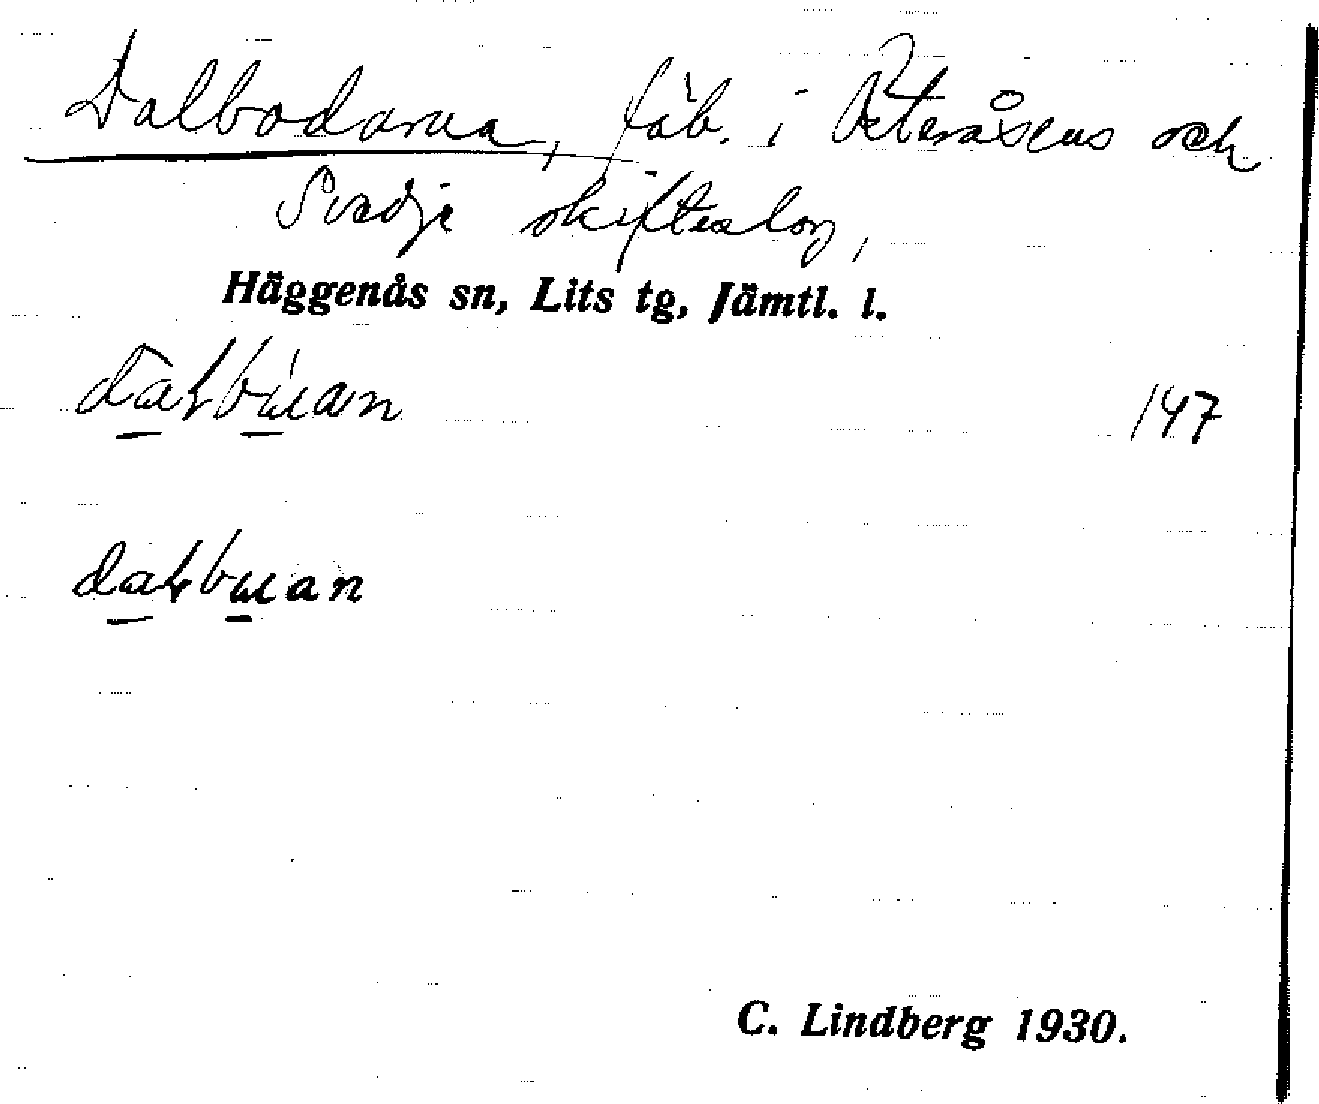 Dalbodarna, fäb. i Peteråsens och
Svedje skifteslag,
Häggenås sn, Lits tg, Jämtl. l.
147
C. Lindberg 1930.